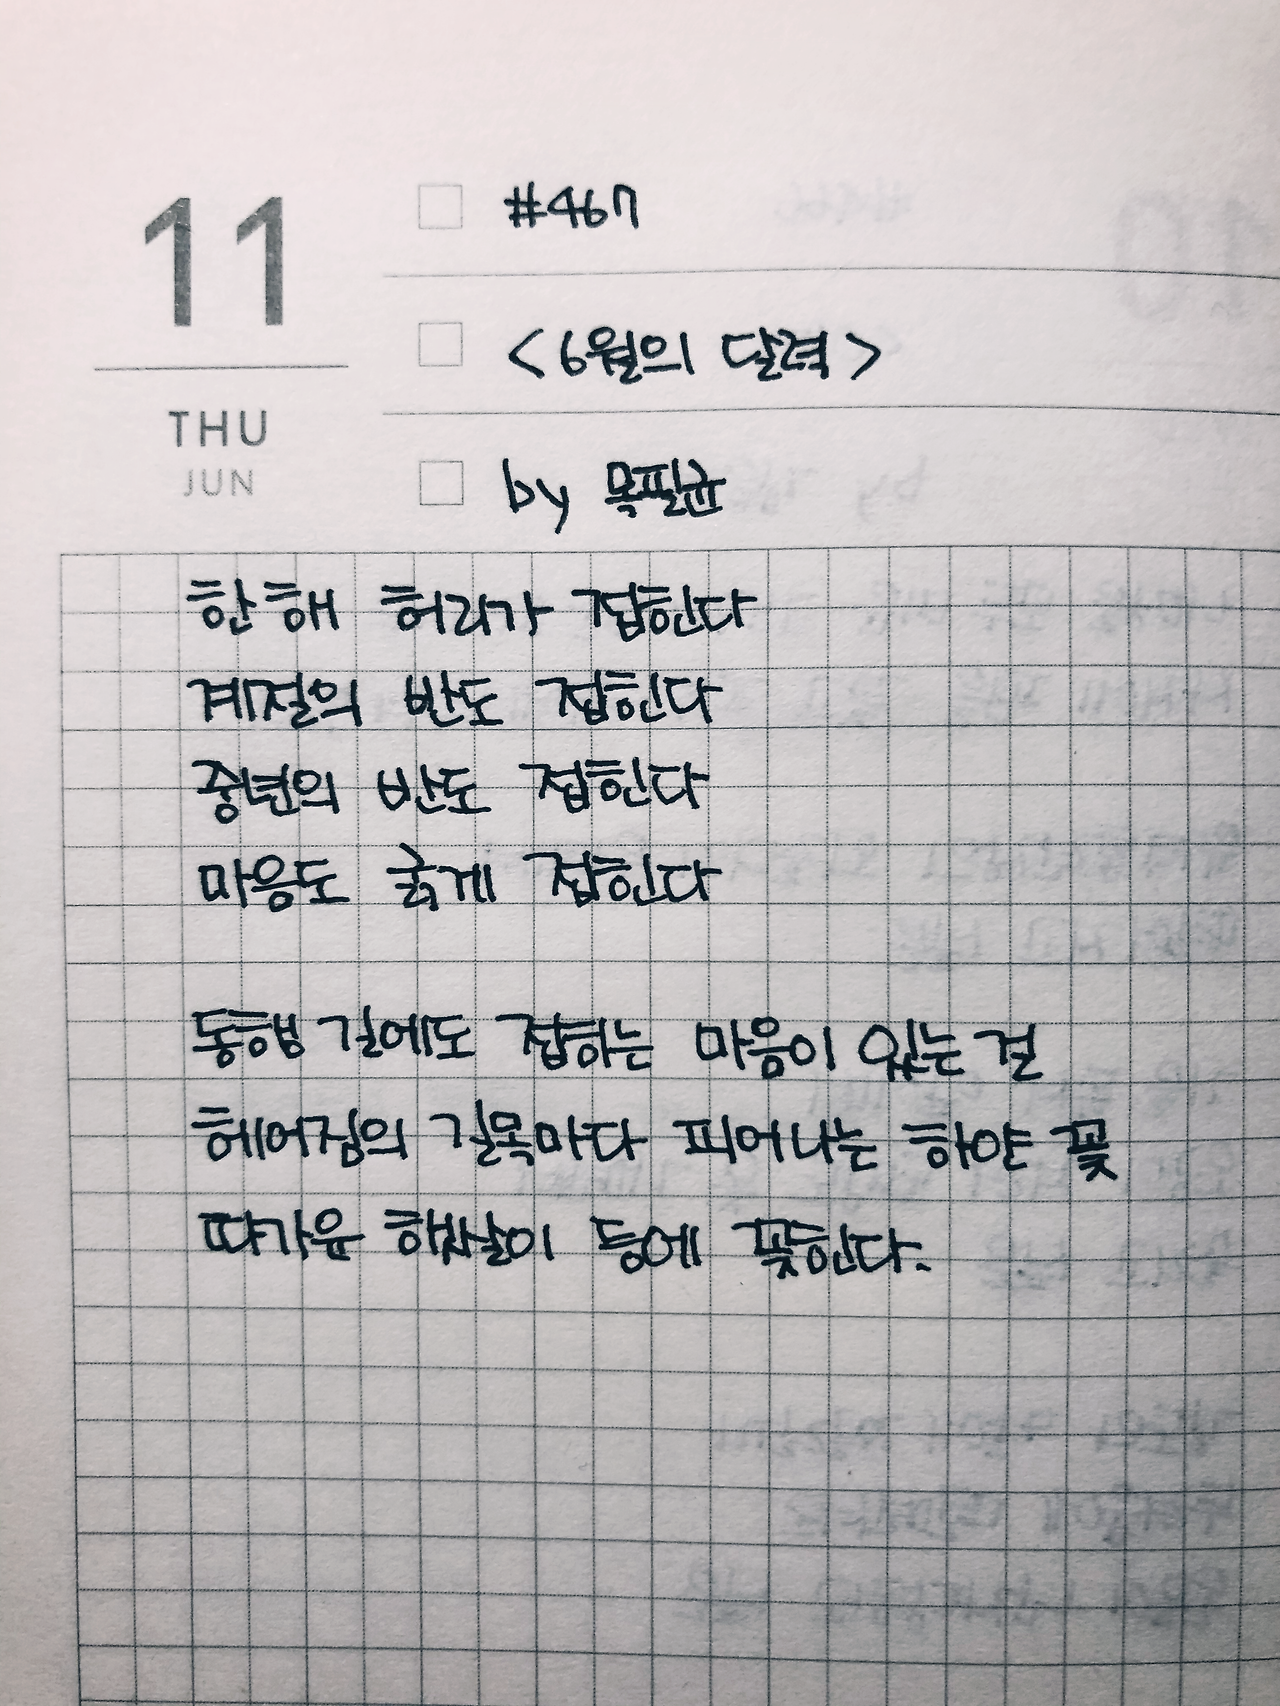 11
THU
JUN
#467
<6월의 달력>
by 목필균
한 해 허리가 접힌다
계절의 반도 접힌다
중년의 반도 접힌다
마음도 굵게 접힌다
동행 길에도 접하는 마음이 있는 걸
헤어짐의 길목마다 피어나는 하얀 꽃
따가운 햇살이 등에 꽂힌다.